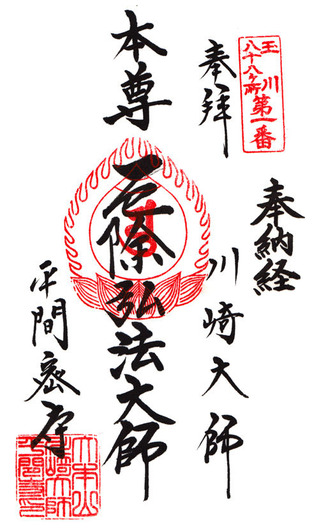 玉川
八十八ヶ所
第一番
奉納経
奉拝
川崎大師
本尊
厄除弘法大師
平間密寺
大本山
川崎大師